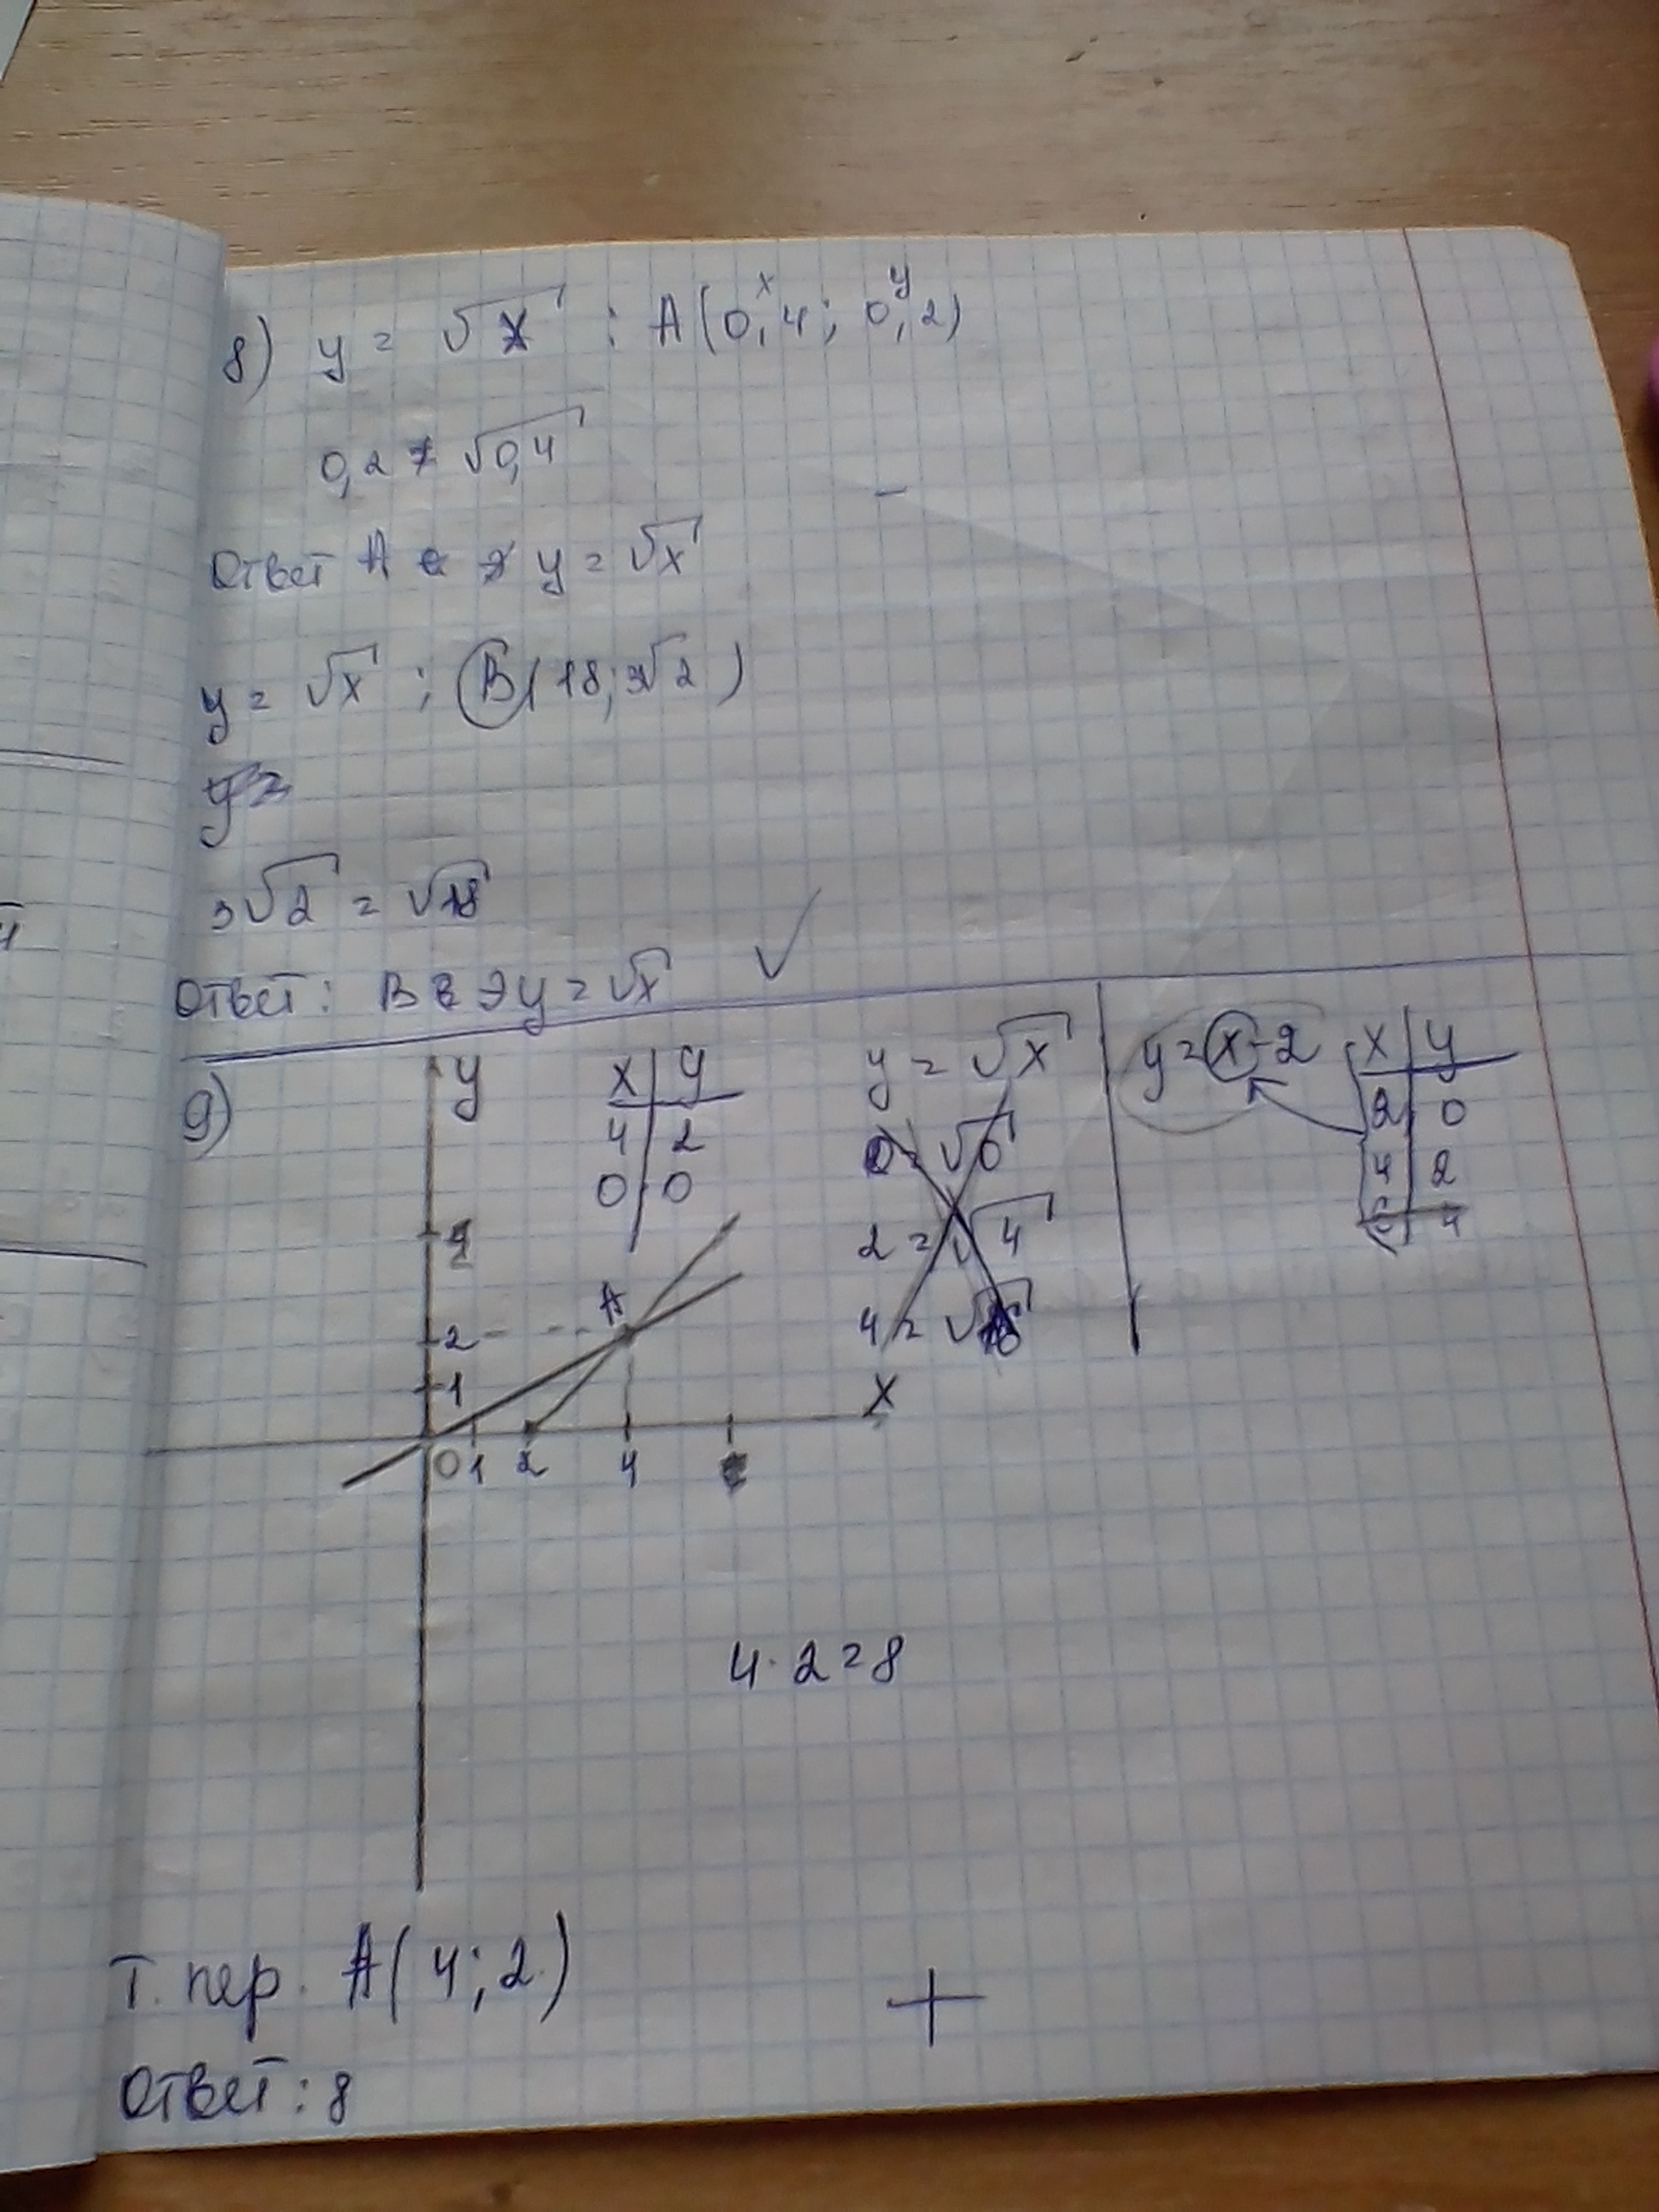 8) y = √x : A(0,4; 0,2)
x y
0,2 ≠ √0,4
Ответ A y = √x
y = √x ; B(18; 3√2)
3√2 = √18
Ответ: B y = √x
9) y
x | y
4 | 2
0 | 0
y = √x
0 = √0
2 = √4
4 =
y = x-2
x | y
2 | 0
4 | 2
6 | 4
4
A
2
1
x
0 1 2 4
4 · 2 = 8
Т. пер. A(4; 2)
Ответ: 8